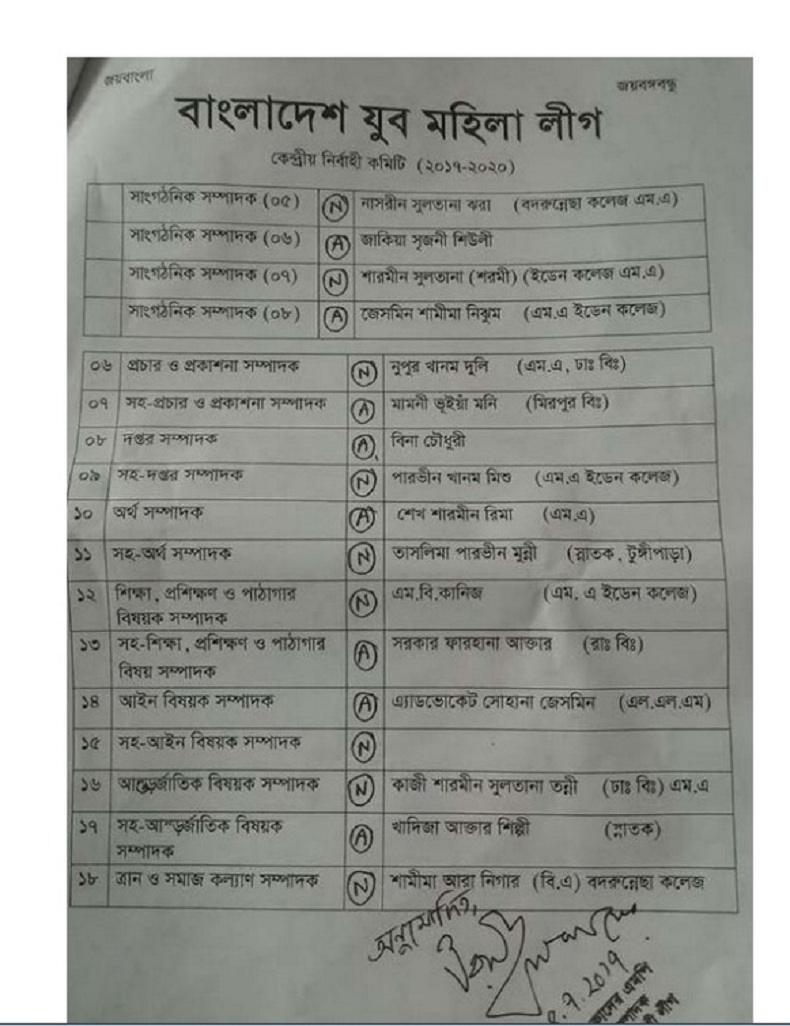 জয়বাংলা
জয়বঙ্গবন্ধু
বাংলাদেশ যুব মহিলা লীগ
কেন্দ্রীয় নির্বাহী কমিটি (২০১৭-২০২০)
সাংগঠনিক সম্পাদক (০৫) N নাসরীন সুলতানা ঝরা (বদরুন্নেছা কলেজ এম.এ)
সাংগঠনিক সম্পাদক (০৬) A জাকিয়া সৃজনী শিউলী
সাংগঠনিক সম্পাদক (০৭) N শারমীন সুলতানা (শরমী) (ইডেন কলেজ এম.এ)
সাংগঠনিক সম্পাদক (০৮) A জেসমিন শামীমা নিঝুম (এম.এ ইডেন কলেজ)
০৬ প্রচার ও প্রকাশনা সম্পাদক N নুপুর খানম দুলি (এম.এ, ঢাঃ বিঃ)
০৭ সহ-প্রচার ও প্রকাশনা সম্পাদক A মামনী ভূইয়াঁ মনি (মিরপুর বিঃ)
০৮ দপ্তর সম্পাদক A বিনা চৌধুরী
০৯ সহ-দপ্তর সম্পাদক N পারভীন খানম মিশু (এম.এ ইডেন কলেজ)
১০ অর্থ সম্পাদক A শেখ শারমীন রিমা (এম.এ)
১১ সহ-অর্থ সম্পাদক N তাসলিমা পারভীন মুন্নী (স্নাতক, টুঙ্গীপাড়া)
১২ শিক্ষা, প্রশিক্ষণ ও পাঠাগার N এম.বি.কানিজ (এম. এ ইডেন কলেজ)
বিষয়ক সম্পাদক
১৩ সহ-শিক্ষা, প্রশিক্ষণ ও পাঠাগার A সরকার ফারহানা আক্তার (রাঃ বিঃ)
বিষয় সম্পাদক
১৪ আইন বিষয়ক সম্পাদক A এ্যাডভোকেট সোহানা জেসমিন (এল.এল.এম)
১৫ সহ-আইন বিষয়ক সম্পাদক N
১৬ আন্তর্জাতিক বিষয়ক সম্পাদক N কাজী শারমীন সুলতানা তন্নী (ঢাঃ বিঃ) এম.এ
১৭ সহ-আন্তর্জাতিক বিষয়ক A খাদিজা আক্তার শিল্পী (স্নাতক)
সম্পাদক
১৮ ত্রান ও সমাজ কল্যাণ সম্পাদক N শামীমা আরা নিগার (বি.এ) বদরুন্নেছা কলেজ
অনুমোদিত,
৭.২০১৭
এমপি
লীগ